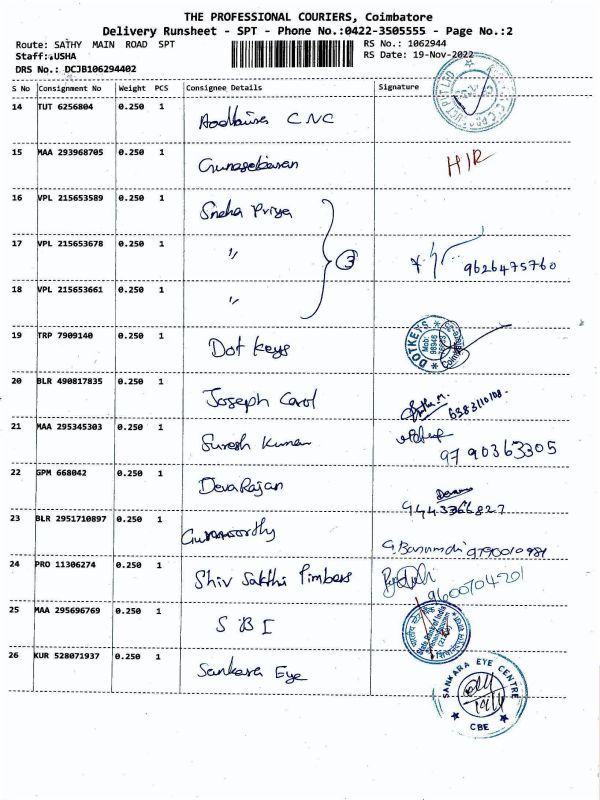 THE PROFESSIONAL COURIERS, Coimbatore
Delivery Runsheet - SPT - Phone No.:0422-3505555 - Page No.:2
Route: SATHY MAIN ROAD SPT
RS No.: 1062944
Staff: USHA
RS Date: 19-Nov-2022
DRS No.: DCJB106294402
S No Consignment No Weight PCS Consignee Details Signature
14 TUT 6256804 0.250 1 CNC
15 MAA 293968705 0.250 1 Gunasekaran H/R
16 VPL 215653589 0.250 1 Sneha Priya
17 VPL 215653678 0.250 1 " 3 9626475760
18 VPL 215653661 0.250 1 "
19 TRP 7909140 0.250 1 Dot Keys DOTKEYS
20 BLR 490817835 0.250 1 Joseph Carol 6383110108
21 MAA 295345303 0.250 1 Suresh Kumar 9790363305
22 GPM 668042 0.250 1 DevaRajan 9443366827
23 BLR 2951710897 0.250 1 Gurumoorthy
24 PRO 11306274 0.250 1 Shiv Sakthi Timbers 9600704201
25 MAA 295696769 0.250 1 SBI State Bank of India
26 KUR 528071937 0.250 1 Sankara Eye SANKARA EYE CENTRE CBE